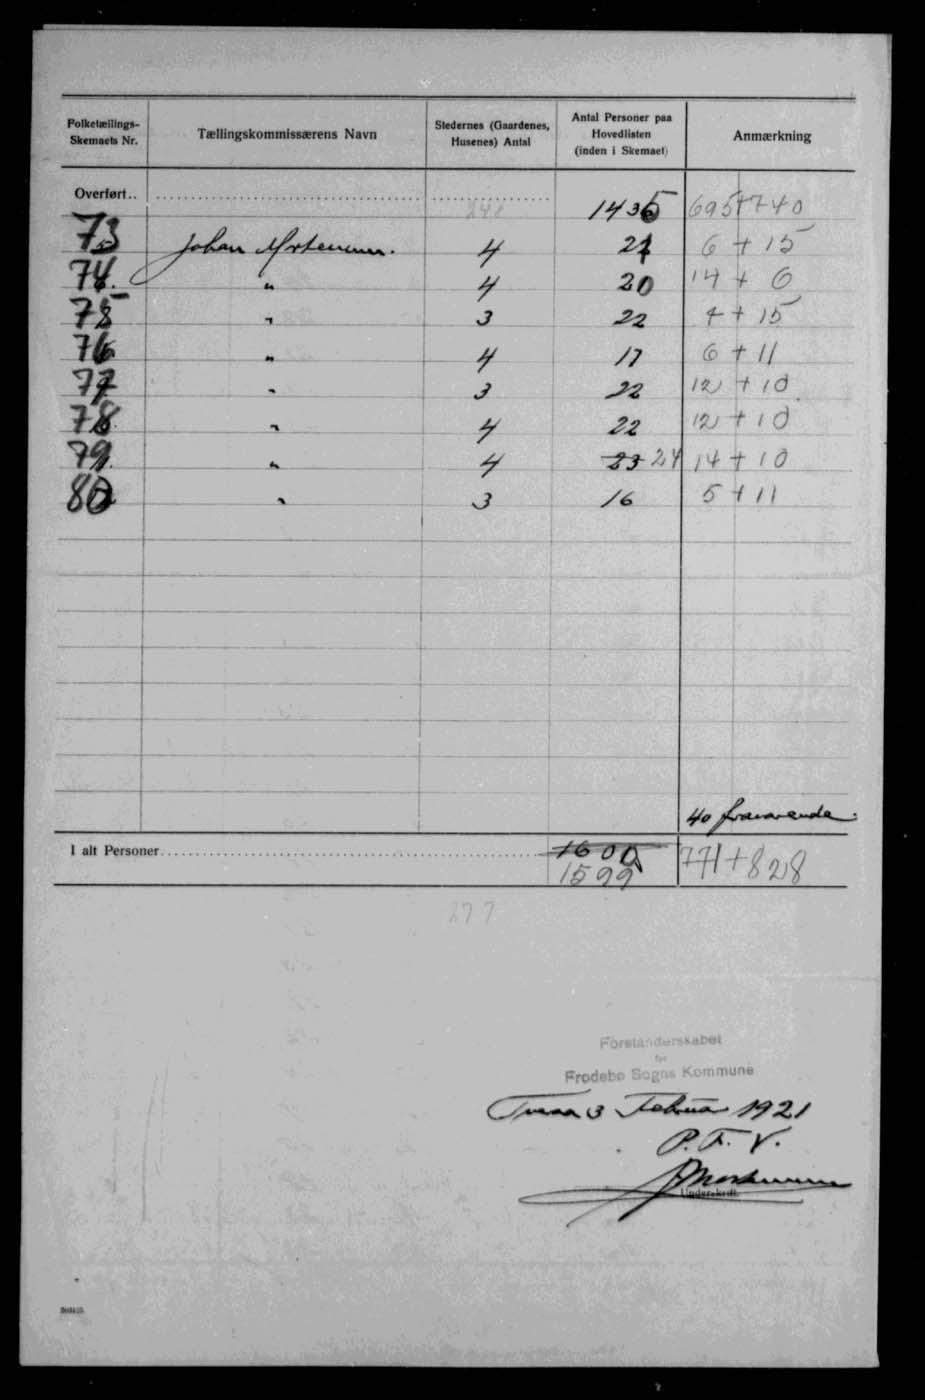 Folketællings-Skemaets Nr. Tællingskommissærens Navn Stedernes (Gaardenes, Husenes) Antal Antal Personer paa Hovedlisten (inden i Skemaet) Anmærkning
Overført.. 248 1435 695+740
73 Johan Mortensen. 4 21 6 + 15
74 " 4 20 14 + 6
75 " 3 22 7 + 15
76 " 4 17 6 + 11
77 " 3 22 12 + 10
78 " 4 22 12 + 10
79 " 4 23 24 14 + 10
80 " 3 16 5 + 11
40 fraværende.
I alt Personer 1600 771+828
1599
277
Forstanderskabet
for
Frodebø Sogns Kommune
Tveraa 3 Februar 1921
P. F. V.
J Mortensen
Underskrift.